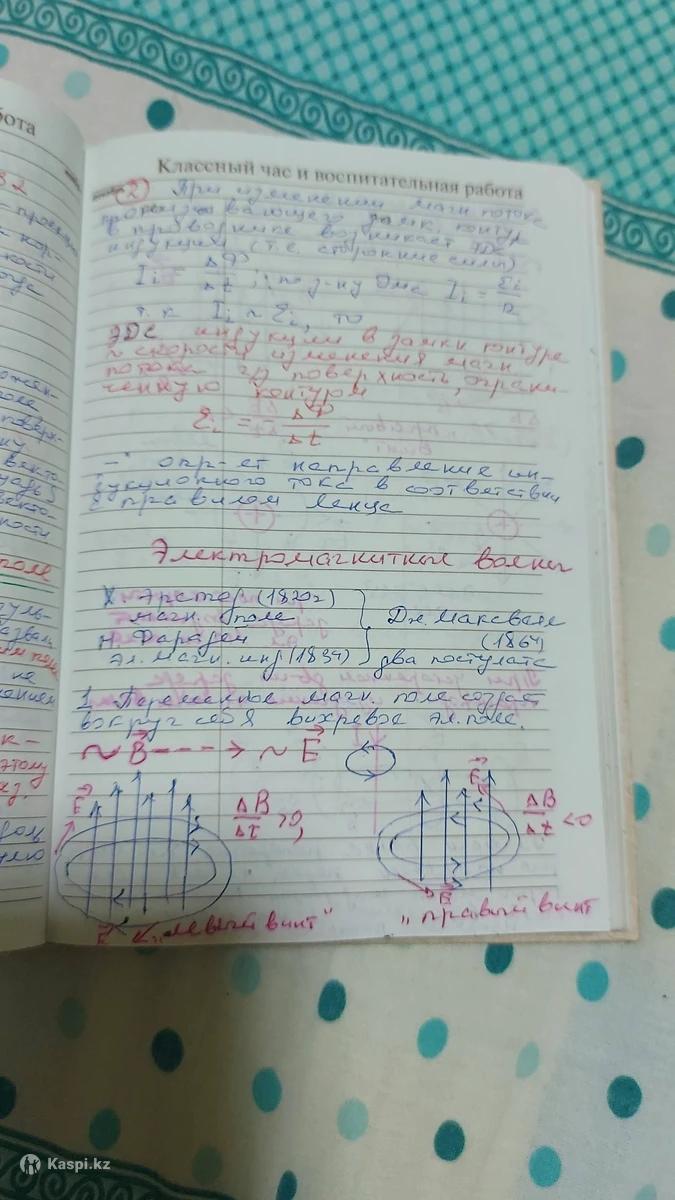 бота
Классный час и воспитательная работа
2) При изменении магн потока
пронизывающего замк. контур
в проводнике возникает ЭДС
индукции (т.е. сторонние силы)
Ii = ΔΦ/Δt ; по з-ну Ома Ii = Ɛi/R
т. к Ii ~ Ɛi, то
ЭДС индукции в замкн контуре
~ скорости изменения магн
потока ч/з поверхность, ограни-
ченную контуром
Ɛi = ΔΦ/Δt
"–" опр-ет направление ин-
дукционного тока в соответствии
с правилом Ленца
Электромагнитные волны
Х Эрстед (1820г)
магн. поле
Дж. Максвелл
М. Фарадей
(1864)
эл. магн. инд (1831) два постулата
1. Переменное магн. поле создает
вокруг себя вихревое эл. поле.
~ B - - - → ~ E
E
ΔB/Δt >0,
E
ΔB/Δt <0
E
"левый винт"
E
"правый винт
Kaspi.kz